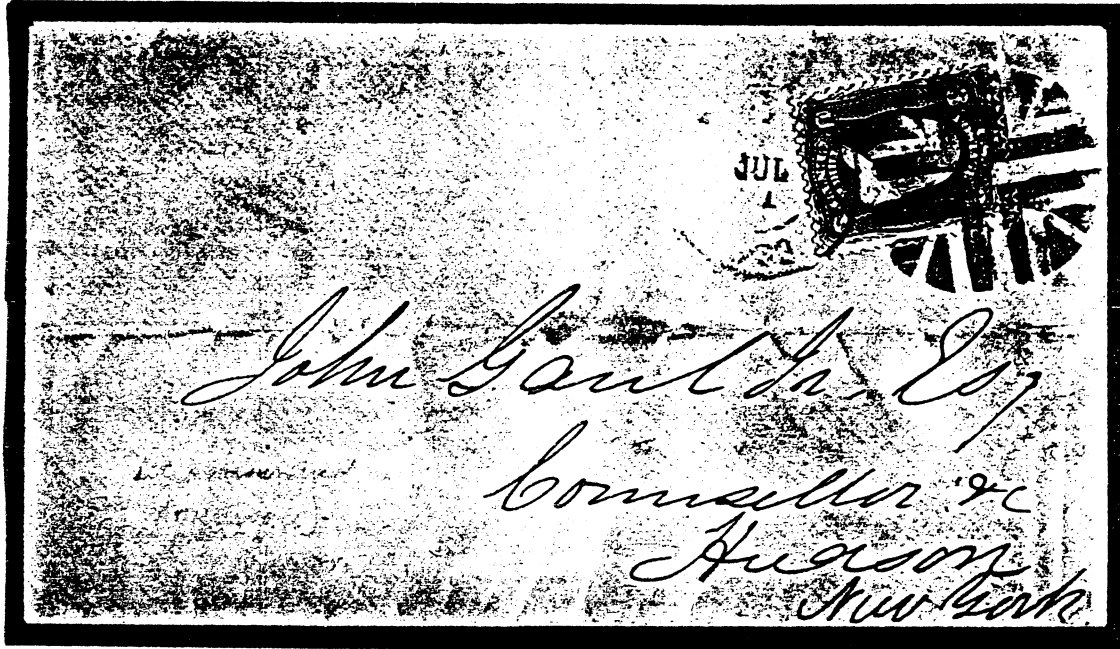 JUL
1
John Gaul Jr. Esq
Counsellor &c
Hudson
New York